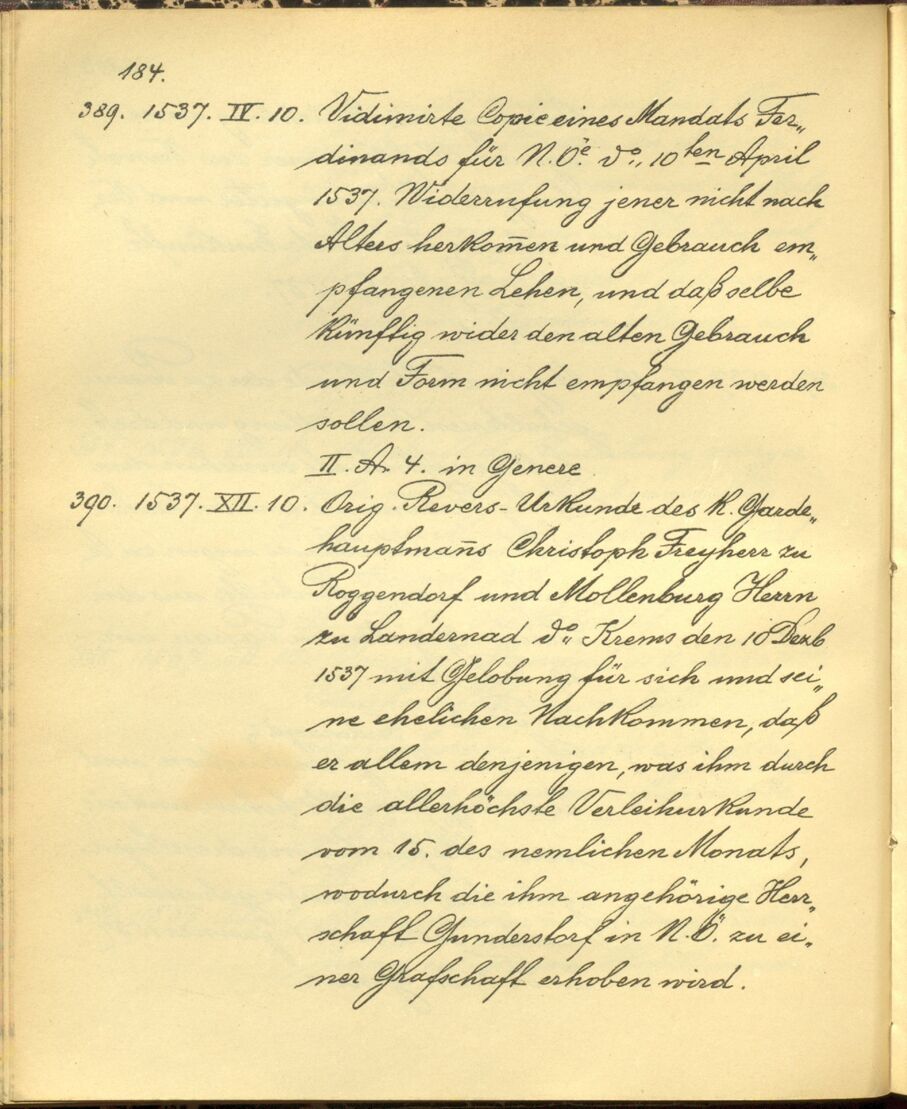 184.
389. 1537. IV. 10. Vidimirte Copie eines Mandats Fer„
dinands für N.Öe. do., 10ten April
1537. Widerrufung jener nicht nach
Alters herkom̄en und Gebrauch em„
pfangenen Lehen, und daß selbe
künftig wider den alten Gebrauch
und Form nicht empfangen werden
sollen.
II. A. 4. in Genere
390. 1537. XII. 10. Orig. Revers-Urkunde des K. Garde„
hauptman̄s Christoph Freyherr zu
Roggendorf und Mollenburg Herrn
zu Landernad do„ Krems den 10 Dezb
1537 mit Gelobung für sich und sei„
ne ehelichen Nachkommen, daß
er allem denjenigen, was ihm durch
die allerhöchste Verleihurkunde
vom 15. des nemlichen Monats,
wodurch die ihm angehörige Herr„
schaft Gunderstorf in N.Ö. zu ei„
ner Grafschaft erhoben wird.